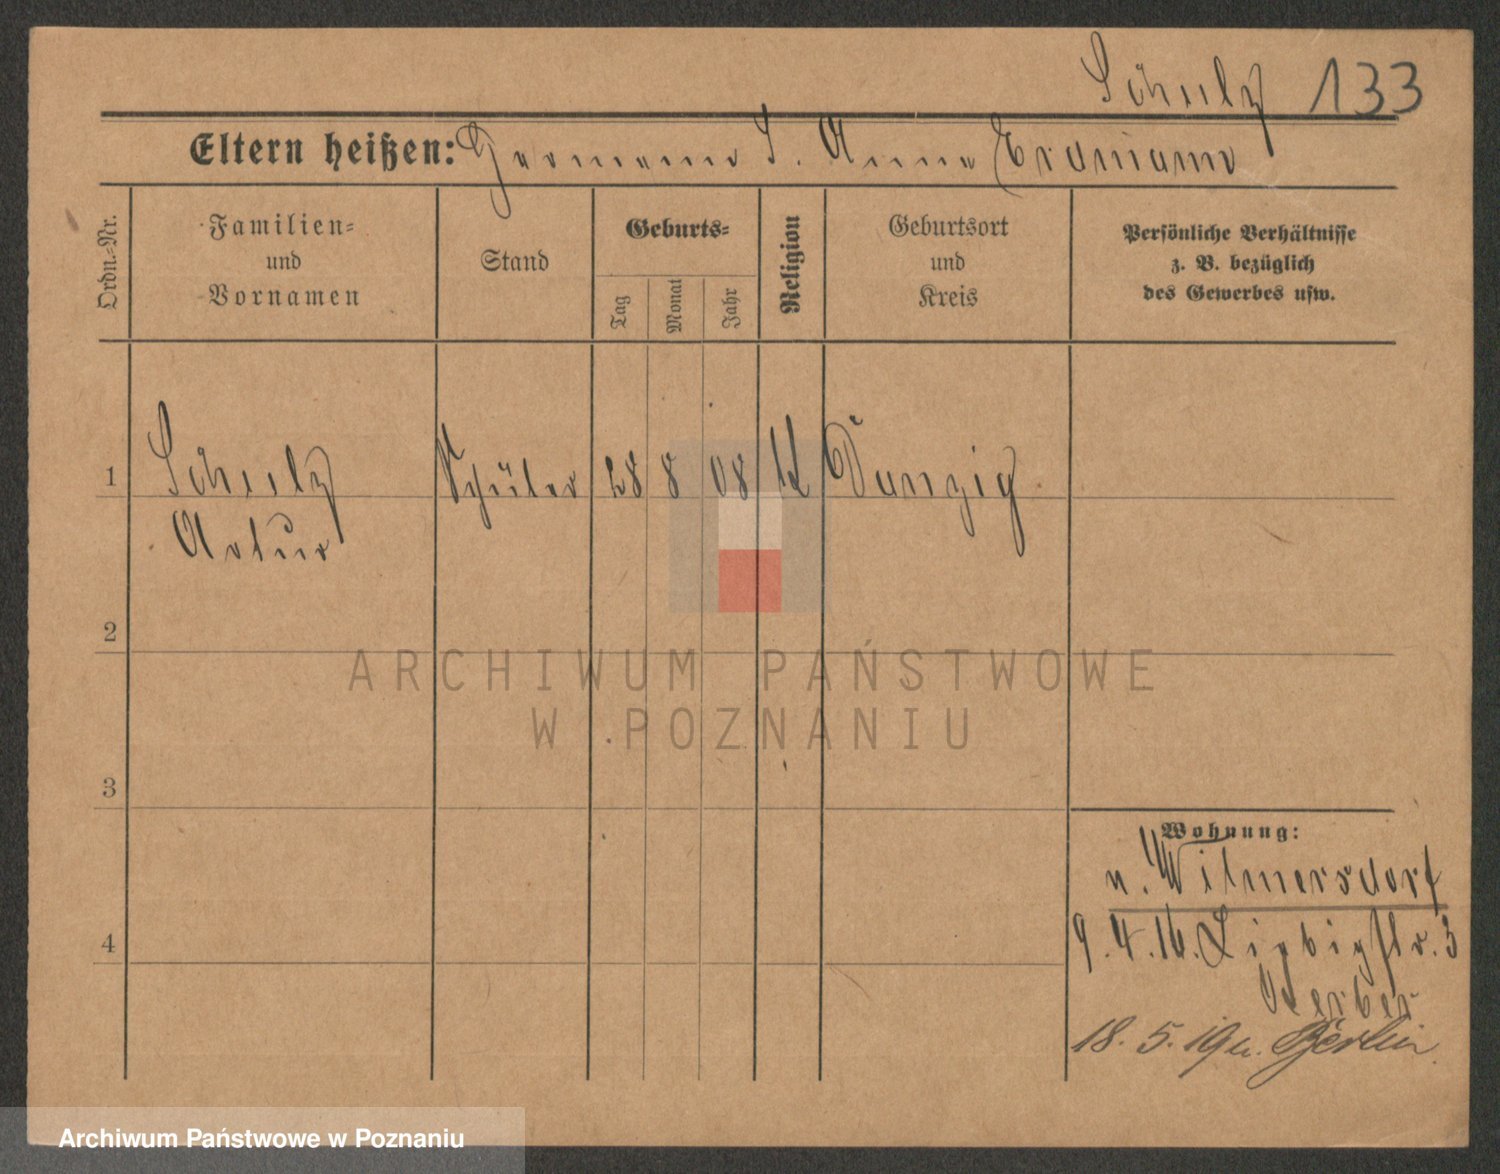 Schulz 133
Eltern heißen: Hermann S. Anna Erdmann
Ordn.-Nr.
Familien- und Vornamen
Stand
Geburts-
Tag
Monat
Jahr
Religion
Geburtsort und Kreis
Persönliche Verhältnisse
z. B. bezüglich
des Gewerbes usw.
1 Schulz Schüler 28 8 08 Danzig
Artur
2
3
4
Wohnung:
n. Wilmersdorf
9.4.16. Liebigstr. 3
Gerber
18.5.19 n. Berlin
ARCHIWUM PAŃSTWOWE
W POZNANIU
Archiwum Państwowe w Poznaniu